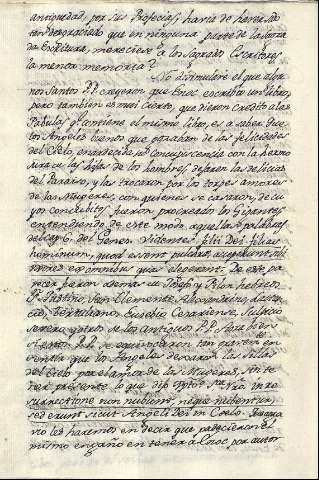 antiguedad, por sus Profecias, havia de haver sido
tan desgraciado que en ninguna parte de la Sagra
da Escritura, mereciese a los Sagrados Escritores
la menor memoria?
No disimularé el que algu
nos Santos P.P. creyeron que Enoc escribió un Libro,
pero tambien es mui cierto, que dieron credito a las
Fabulas q.e contiene el mismo libro, es a saber que
los Angeles buenos que gozaban de las felicidades
del Cielo, enardecida su concupiscencia con la hermo
sura de las hijas de los hombres, dejaron las delicias
del Paraiso, y las trocaron por los torpes amores
de las Mugeres, con quienes se casaron, de cu
yos concubitos fueron procreados los Gigantes,
entendiendo de este modo aquellas palabras
del cap. 6. del Genes. Videntes filii Dei filias
hominum, quod essent pulchræ, acceperunt sibi
uxores ex omnibus quas elegerant. De este pa
recer fueron ademas de Josefo y Filon hebreos,
S.n Justino, San Clemente Alexandrino, Lactan
cio, Tertuliano, Eusebio Cesariense, Sulpicio
Severo, y otros de los antiguos P.P.
que los Angeles dexaron las sillas
del Cielo por el amor de las Mugeres, sin te
ner presente lo que dijo
surrectione non nubent, neque nubentur,
sed erunt sicut Angeli Dei in Coelo.
no les haremos en decir que padecieron el
mismo engaño en tener a Enoc por autor